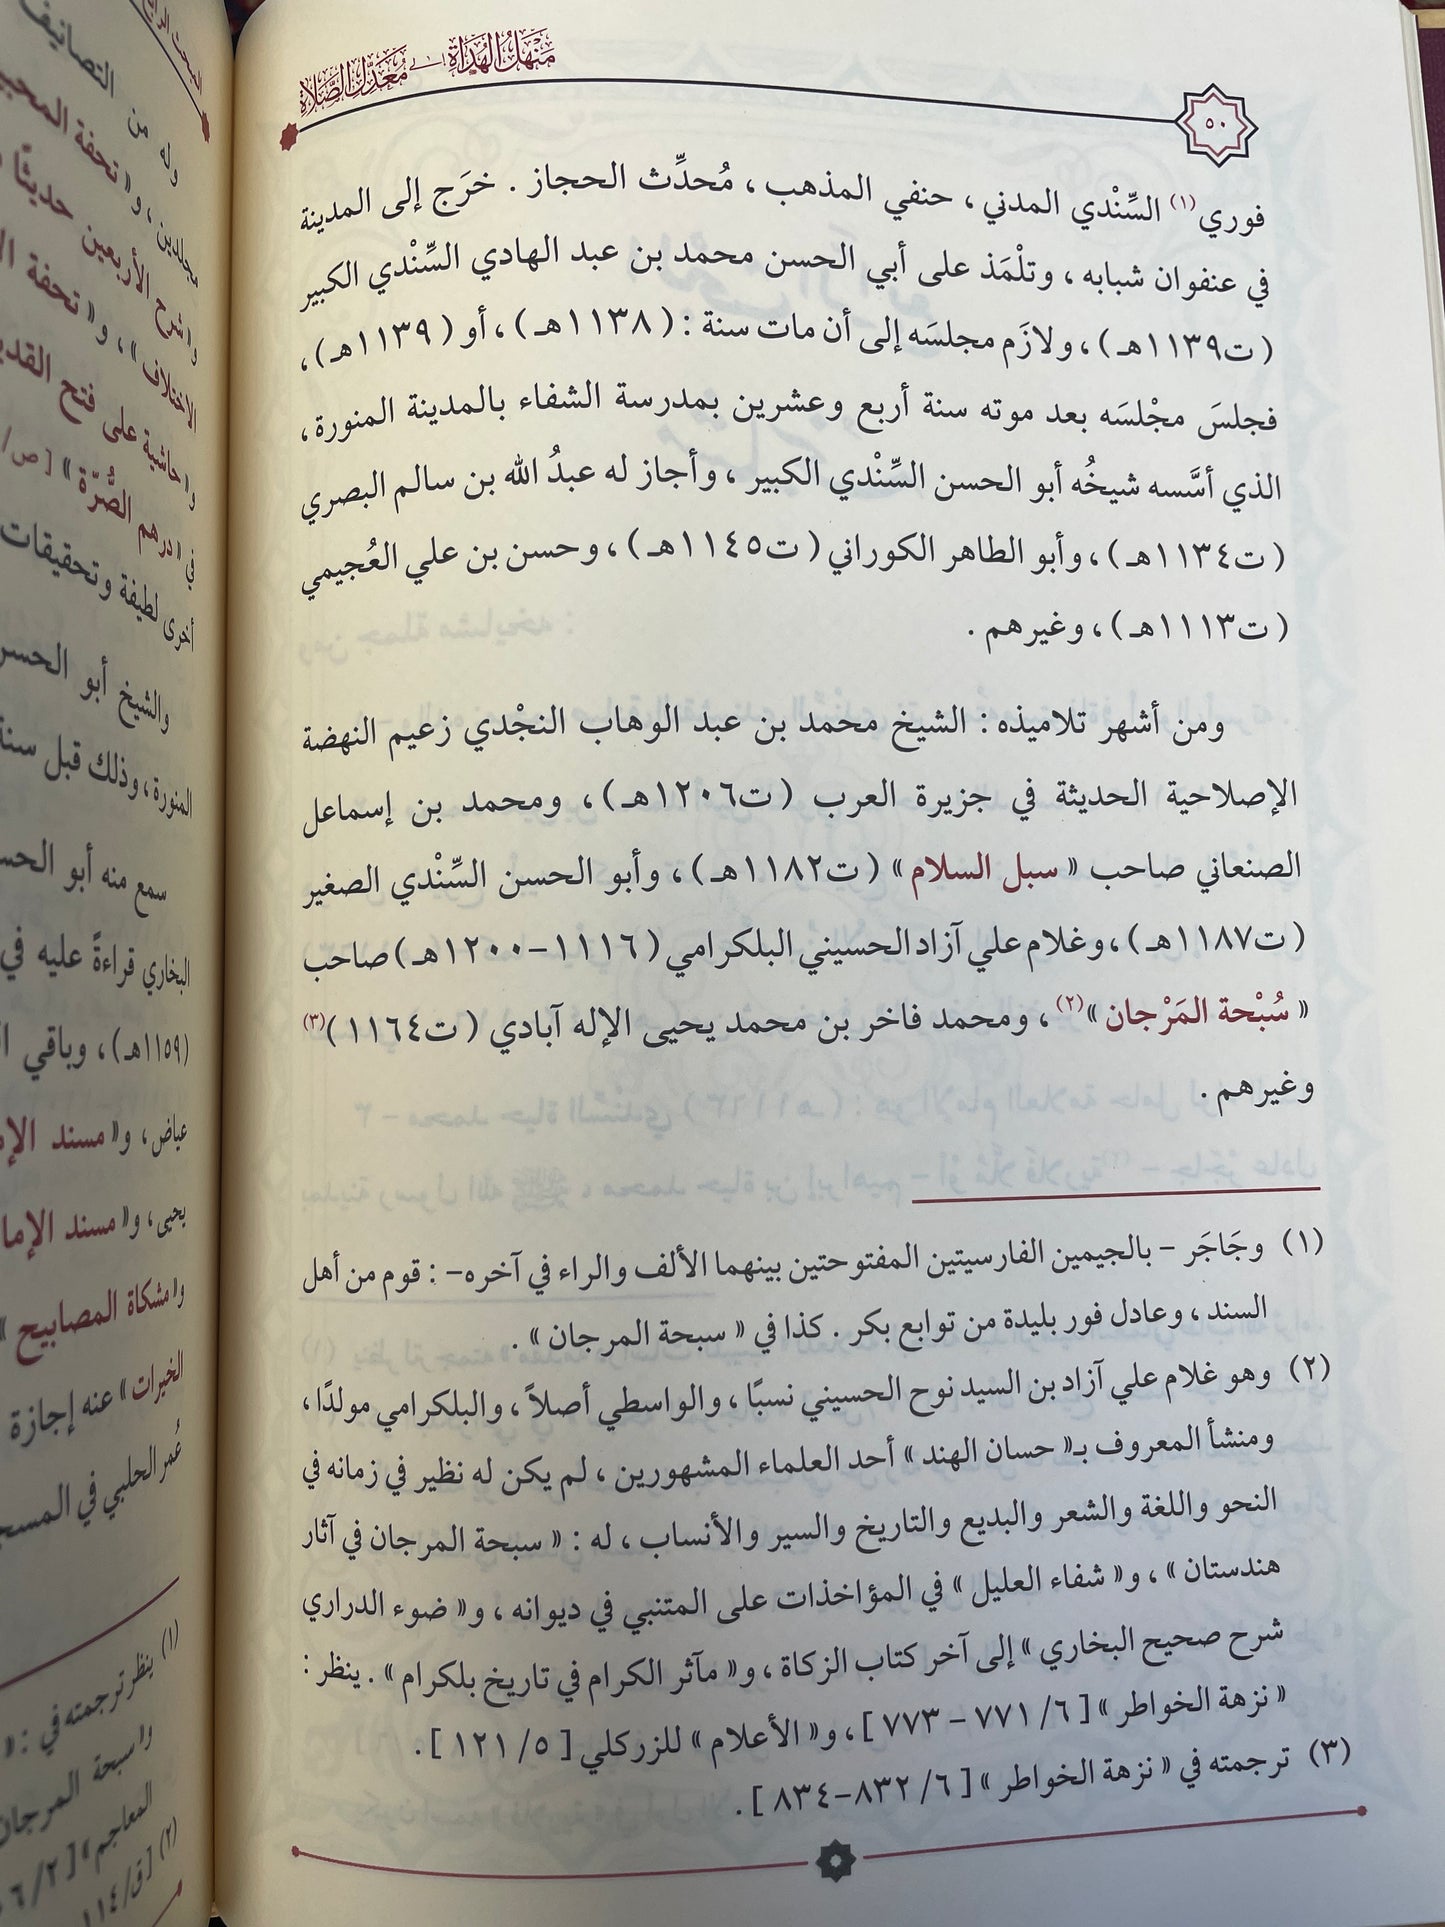 مَنْهَلُ الهُدَاةِ إلى مُعَدِّلِ الصَّلَاةِ
٥٠
فوري(١) السِّنْدي المدني ، حنفي المذهب ، مُحدِّث الحجاز . خرَج إلى المدينة
في عنفوان شبابه ، وتلْمَذ على أبي الحسن محمد بن عبد الهادي السِّنْدي الكبير
( ت١١٣٩هـ ) ، ولازَم مجلسَه إلى أن مات سنة : ( ١١٣٨هـ ) ، أو ( ١١٣٩هـ ) ،
فجلسَ مجْلسَه بعد موته سنة أربع وعشرين بمدرسة الشفاء بالمدينة المنورة ،
الذي أسَّسه شيخُه أبو الحسن السِّنْدي الكبير ، وأجاز له عبدُ الله بن سالم البصري
( ت١١٣٤هـ ) ، وأبو الطاهر الكوراني ( ت١١٤٥هـ ) ، وحسن بن علي العُجيمي
( ت١١١٣هـ ) ، وغيرهم .
ومن أشهر تلاميذه : الشيخ محمد بن عبد الوهاب النجْدي زعيم النهضة
الإصلاحية الحديثة في جزيرة العرب ( ت١٢٠٦هـ ) ، ومحمد بن إسماعل
الصنعاني صاحب « سبل السلام » ( ت١١٨٢هـ ) ، وأبو الحسن السِّنْدي الصغير
( ت١١٨٧هـ ) ، وغلام علي آزاد الحسيني البلكرامي ( ١١١٦-١٢٠٠هـ ) صاحب
« سُبْحة المَرْجان »(٢) ، ومحمد فاخر بن محمد يحيى الإله آبادي ( ت١١٦٤ )(٣)
وغيرهم .
(١) وجَاجَر – بالجيمين الفارسيتين المفتوحتين بينهما الألف والراء في آخره– : قوم من أهل
السند ، وعادل فور بليدة من توابع بكر . كذا في « سبحة المرجان » .
(٢) وهو غلام علي آزاد بن السيد نوح الحسيني نسبًا ، والواسطي أصلاً ، والبلكرامي مولدًا ،
ومنشأ المعروف بـ« حسان الهند » أحد العلماء المشهورين ، لم يكن له نظير في زمانه في
النحو واللغة والشعر والبديع والتاريخ والسير والأنساب ، له : « سبحة المرجان في آثار
هندستان » ، و« شفاء العليل » في المؤاخذات على المتنبي في ديوانه ، و« ضوء الدراري
شرح صحيح البخاري » إلى آخر كتاب الزكاة ، و« مآثر الكرام في تاريخ بلكرام » . ينظر :
« نزهة الخواطر » [ ٦/ ٧٧١ – ٧٧٣ ] ، و« الأعلام » للزركلي [ ٥/ ١٢١ ] .
(٣) ترجمته في « نزهة الخواطر » [ ٦/ ٨٣٢–٨٣٤ ] .
وله من التصانيف
مجلدين ، و« تحفة
و« شرح الأربعين حديثًا
الاختلاف » ، و« تحفة
و« حاشية على فتح القدير
في « درهم الصُّرّة » [ ص/
أخرى لطيفة وتحقيقات
والشيخ أبو الحسن
المنورة ، وذلك قبل سنة
سمع منه أبو
البخاري قراءةً عليه في
( ١١٥٩هـ ) ، وباقي
عياض ، و« مسند
يحيى ، و« مسند
و« مشكاة المصابيح »
الخيرات » عنه إجازة
عُمر الحلبي في
(١) ينظر ترجمته في : «
و« سبحة المرجان
المعاجم » [ ٢/
(٢) [ ق/ ١١٤